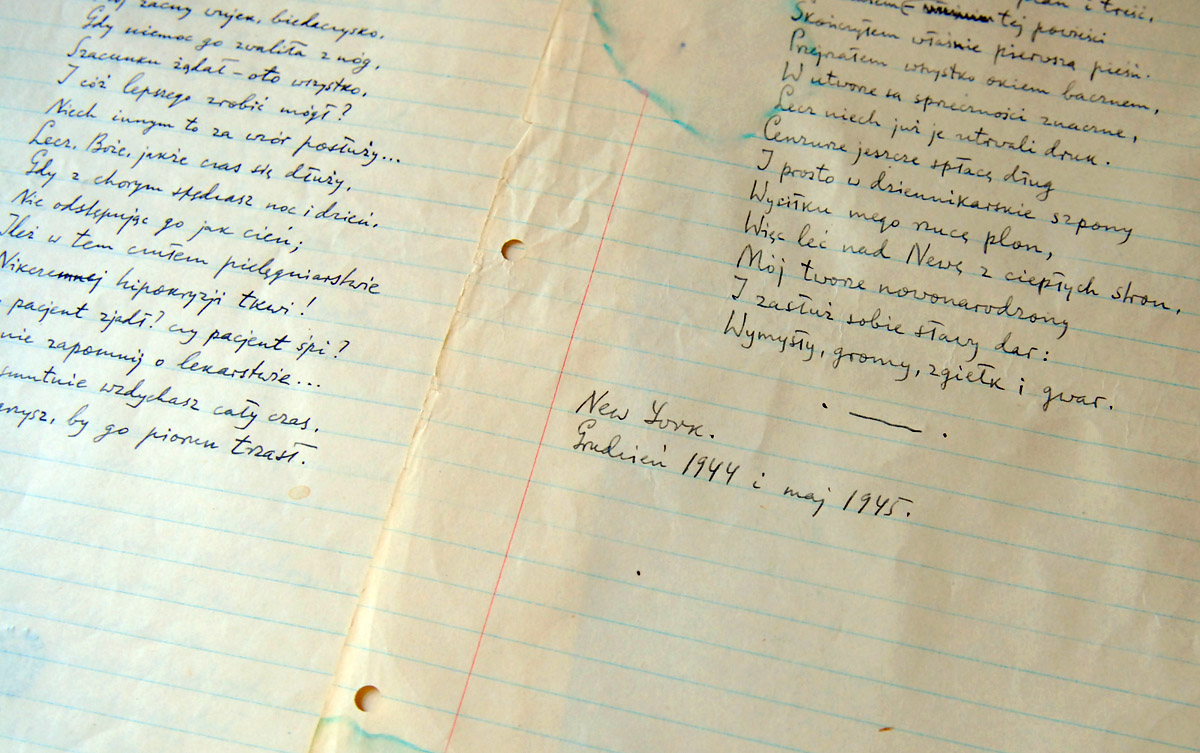 zacny wujek, biedaczysko,
Gdy niemoc go zwaliła z nóg,
Szacunku żądał – oto wszystko,
I cóż lepszego zrobić mógł?
Niech innym to za wzór posłuży...
Lecz, Boże, jakże czas się dłuży,
Gdy z chorym spędzasz noc i dzień,
Nie odstępując go jak cień;
Ileż w tem czułem pielęgniarstwie
Nikczemnej hipokryzji tkwi!
pacjent zjadł? czy pacjent śpi?
nie zapomnij o lekarstwie...
smutnie wzdychasz cały czas,
by go piorun trzasł.
plan i treść,
tej powieści
Skończyłem właśnie pierwszą pieśń.
Przejrzałem wszystko okiem bacznem,
W utworze są sprzeczności znaczne,
Lecz niech już je utrwali druk.
Cenzurze jeszcze spłacę dług
I prosto w dziennikarskie szpony
Wysiłku mego rzucę plon,
Więc leć nad Newę z ciepłych stron,
Mój tworze nowonarodzony
I zasłuż sobie sławy dar:
Wymysły, gromy, zgiełk i gwar.
New York.
Grudzień 1944 i maj 1945.